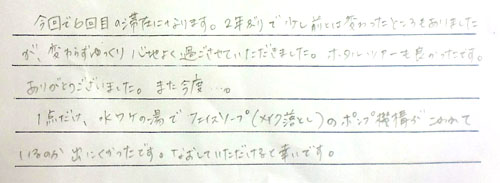 今回で6回目の滞在になります。2年ぶりで少し前とは変わったところもありました
が、変わらずゆっくり心地よく過ごさせていただきました。ホタルツアーも良かったです。
ありがとうございました。また今度…。
1点だけ、水ワケの湯でフェイスソープ(メイク落とし)のポンプ機構がこわれて
いるのか出にくかったです。なおしていただけると幸いです。